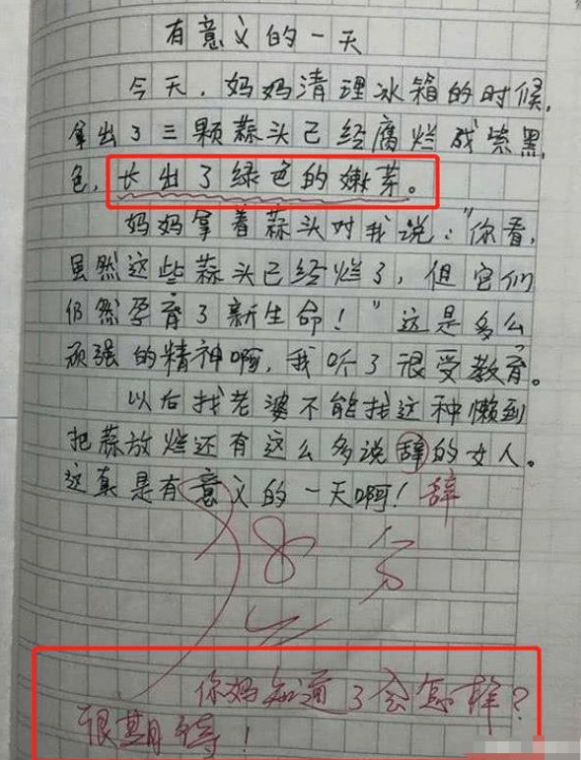 有意义的一天
今天，妈妈清理冰箱的时候，
拿出了三颗蒜头已经腐烂成紫黑
色，长出了绿色的嫩芽。
妈妈拿着蒜头对我说："你看，
虽然这些蒜头已经烂了，但它们
仍然孕育了新生命！"这是多么
顽强的精神啊，我听了很受教育。
以后找老婆不能找这种懒到
把蒜放烂还有这么多说辞的女人。
这真是有意义的一天啊！辞
38分
你妈知道了会怎样？
很期待！